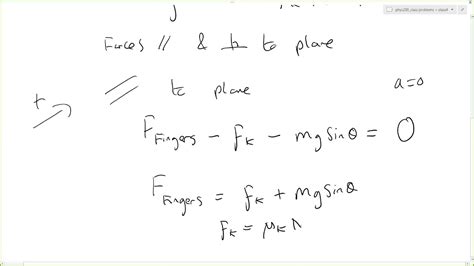 Forces // & ⊥ to plane
+ // to plane a=0
F_Fingers - f_K - mg sinθ = 0
F_Fingers = f_K + mg sinθ
f_K = μ_K